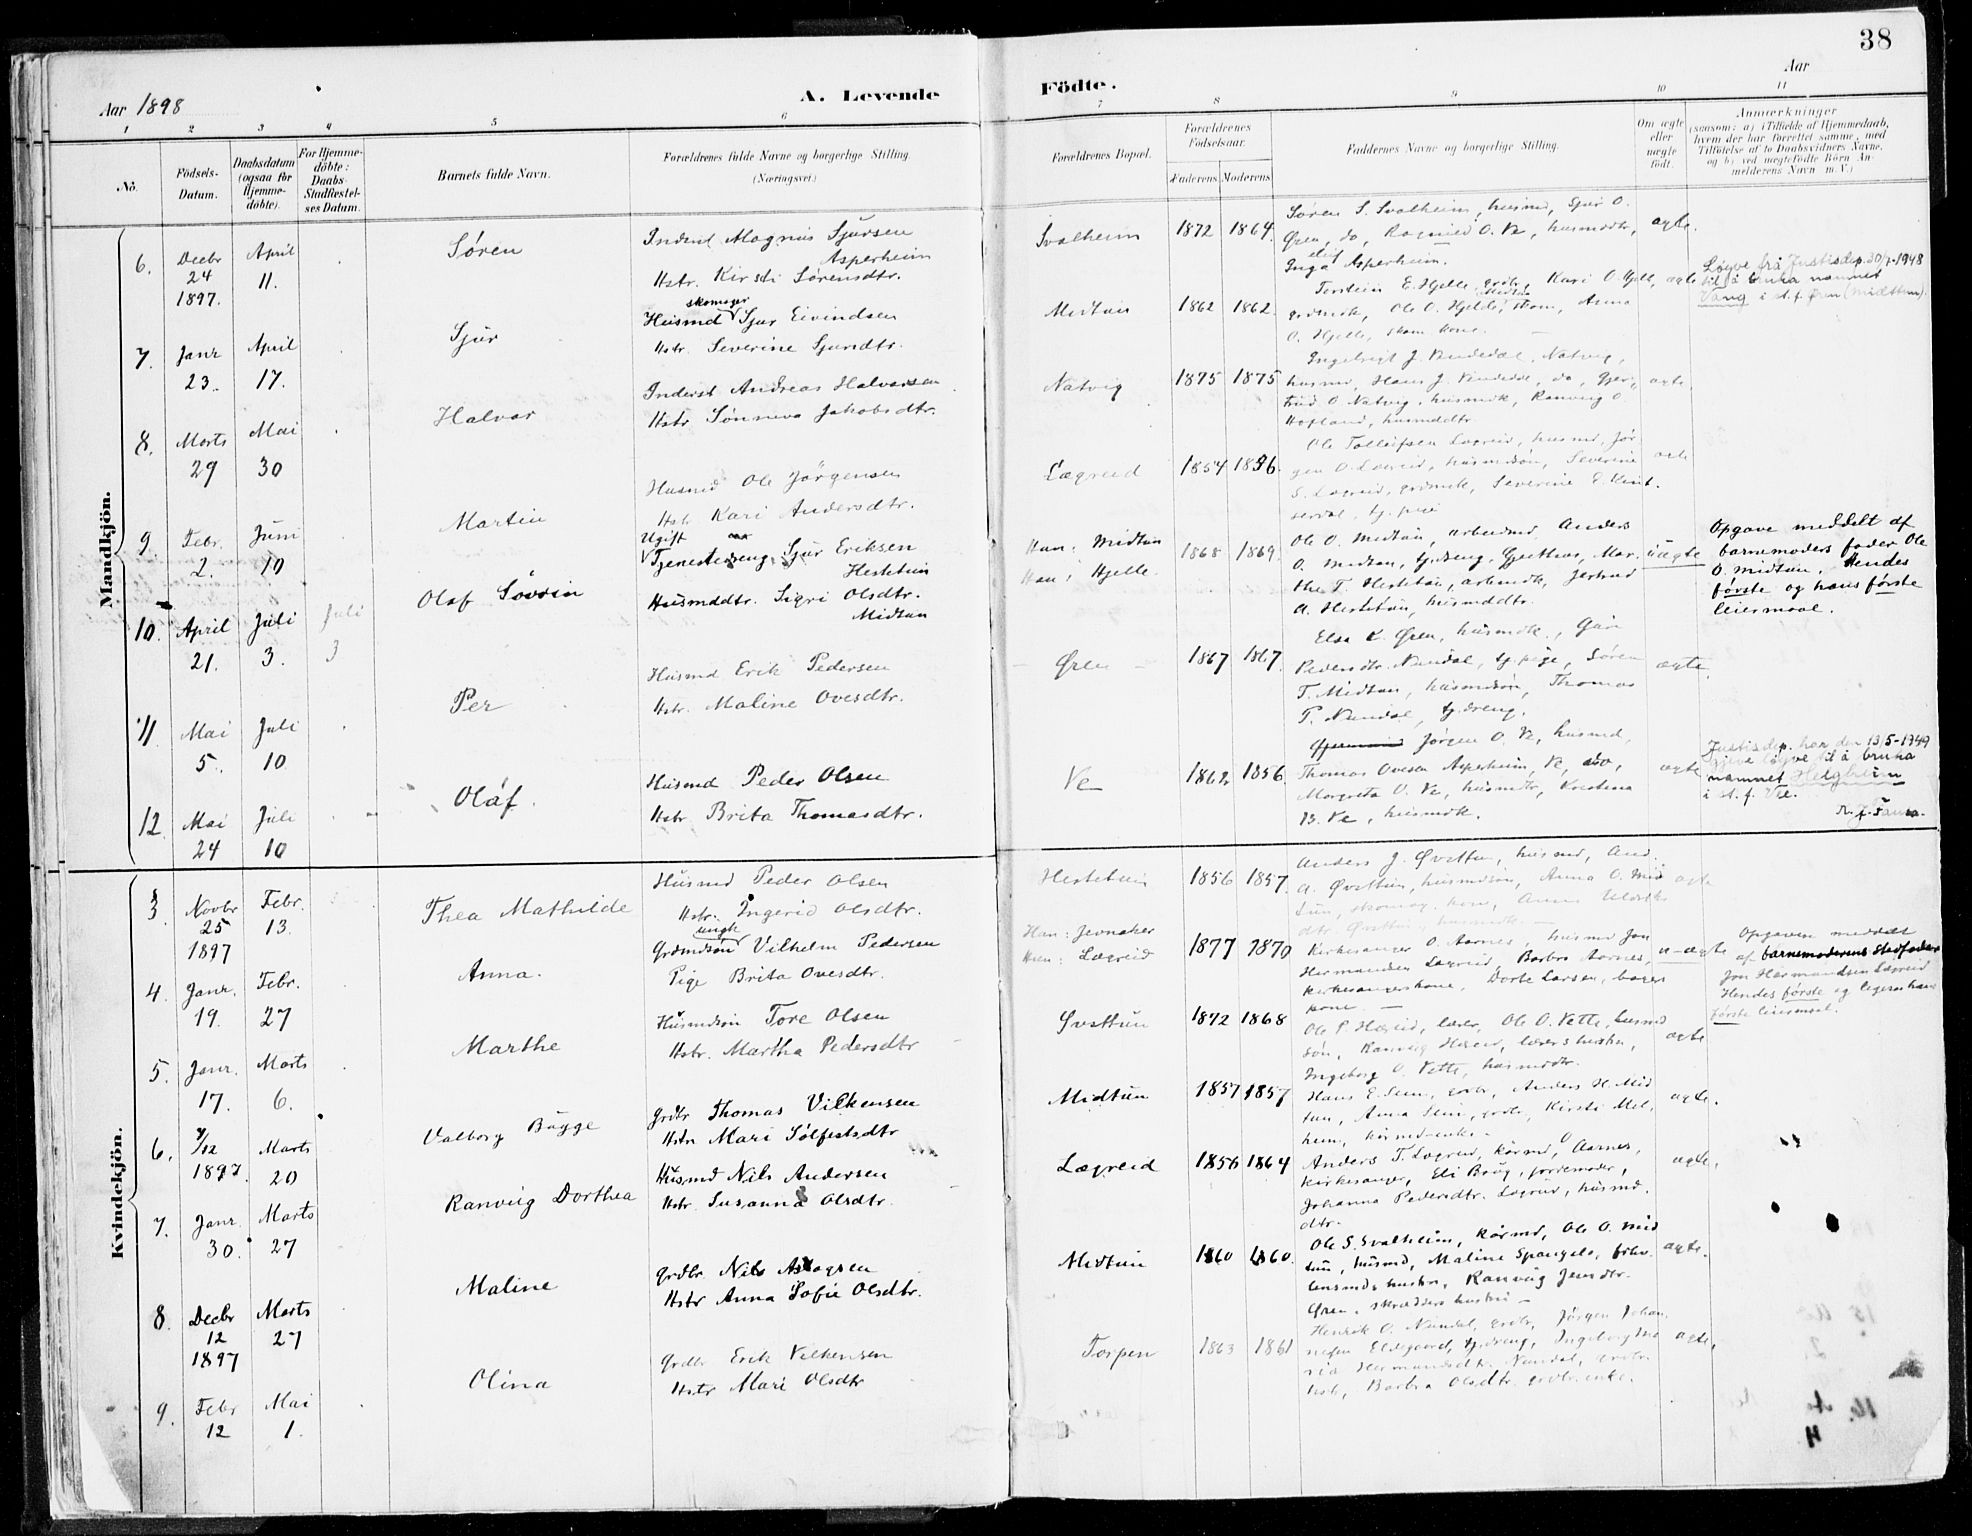 38
Aar 1898
A. Levende
Födte.
Aar
1 2 3 4 5 6 7 8 9 10 11
No.
Födsels-Datum.
Daabsdatum (ogsaa for Hjemme-döbte).
For Hjemme-döbte: Daabs-Stadfæstel-ses Datum.
Barnets fulde Navn.
Forældrenes fulde Navne og borgerlige Stilling.
(Næringsvei.)
Forældrenes Bopæl.
Forældrenes Födselsaar.
Faderens. Moderens.
Faddernes Navne og borgerlige Stilling.
Om ægte eller uægte födt.
Anmærkninger
(saasom: a) i Tilfælde af Hjemmedaab,
hvem der har forrettet samme, med
Tilföielse af to Daabsvidners Navne,
og b) ved uægtefödte Börn An-
melderens Navn m. V.)
Mandkjön.
6. Decbr 24 1897. April 11. Søren
Inderst Magnus Sjursen Asperheim
Hstr. Kirsti Sørensdtr.
Svalheim 1872 1864.
Søren S. Svalheim, husmd, Sjur O.
Øren, do, Ragnild O. Ve, husmdtr,
Inga Asperheim.
ægte.
7. Janr 23. April 17. Sjur
skomager
Husmd Sjur Eivindsen
Hstr. Severine Sjurdtr.
Midtun 1862 1862.
Torstein E. Hjelle, grdbr, Kari O Hjelle,
grdmdk, Ole O. Hjelle, skom, Anna
O. Hjelle, skom. kone.
ægte
Løyve frå Justisdep. 30/1-1948
til å bruka namnet
Vang i st. f. Øren (Midttun).
8. Marts 29 Mai 30 Halvar
Inderst Andreas Halvorsen
Hstr Sønneva Jakobsdtr.
Natvig 1875 1875
Natvig,
husmd, Hans J. do, Gjer-
trud O Natvig, husmdk, Ranveig O.
Hofland, husmddtr.
ægte
9. Febr. 2. Juni 10 Martin
Husmd Ole Jørgensen
Hstr Kari Andersdtr.
Lægreid 1854 1856.
Ole Tolleifsen Lægreid, husmd, Jør-
gen O. Lægreid, husmdsøn, Severine
S. Lægreid, grdmdk, Severine E.
tj. pige
ægte
10. April 21. Juli 3. Juli 3 Olaf Søvrin
Ugift
Tjenestedreng Sjur Eriksen Hestetun
Husmddtr. Sigri Olsdtr. Midtun
Han: Midtun
Hun: Hjelle
1868 1869.
Ole O. Midtun, arbeidmd, Anders
O. Midtun, tj.dreng, Mar-
the T. Hestetun, arbmdk, Jertrud
A. Hestetun, husmddtr.
uægte
Opgave meddelt af
barnemoders fader Ole
O. Midtun. Hendes
første og hans første
leiermaal.
11. Mai 5. Juli 10 Per
Husmd Erik Pedersen
Hstr. Maline Ovesdtr.
Øren 1867 1867.
Elsa K. Øren, husmdk., Guri
Pedersdtr. Nundal, tj. pige, Søren
T. Midtun, husmdsøn, Thomas
P. Nundal, tj. dreng.
ægte.
12. Mai 24 Juli 10 Olaf.
Husmd Peder Olsen
Hstr Brita Thomasdtr.
Ve 1862 1856.
Jørgen O. Ve, husmd,
Thomas Ovesen Asperheim, Ve, do,
Margreta O. Ve, husmdtr, Kristina
B. Ve, husmdk.
ægte
Justisdep. har den 13/5-1949
gjeve løyve til å bruka
namnet Helgheim
i st. f. Ve.
Kvindekjön.
3 Novbr 25 1897 Febr. 13. Thea Mathilde
Husmd Peder Olsen
Hstr. Ingerid Olsdtr.
Hestetun 1856 1857.
Anders J. Øvsttun, husmd, And.
A. Øvsttun, husmdsøn, Anna O. Mid-
tun, skomag. kone, Anna
dtr Øvsttun, husmdk. —
ægte
4. Janr. 19. Febr. 27 Anna.
ungk
Grdmdsøn Vilhelm Pedersen
Pige Brita Ovesdtr.
Han: Jevnaker
Hun: Lægreid
1877 1870
Kirkesanger O. Aarnes, husmd Jon
Hermundsen Lægreid, Barbro Aarnes,
kirkesangerskone, Dorte Larsen, bagers
kone. —
u-ægte
Opgaven meddelt
af barnemoderens stedfader
Jon Hermundsen Lægreid
Hendes første og ligesaa hans
første leiermaal.
5. Janr. 17. Marts 6. Marthe
Husmdsøn Tore Olsen
Hstr. Martha Pedersdtr
Øvsttun 1872 1868
Ole P. Hæreid, lærer, Ole O. Vette, husmd
søn, Ranveig Hæreid, lærers hustru,
Ingeborg O. Vette, husmddtr.
ægte
6. 7/12 1897. Marts 20 Valborg Bugge
Grdbr Thomas Vilkensen
Hstr Mari Sølfestsdtr
Midtun 1857 1857
Hans E. Sun, grdbr, Anders H. Mid-
tun, Anna Sun, grdbr, Kirsti Mel-
heim,
ægte.
7. Janr. 30. Marts 27 Ranveig Dorthea
Husmd Nils Andersen
Hstr. Susanna Olsdtr.
Lægreid 1856 1864
Anders T. Lægreid, kårmd, O Aarnes,
kirkesanger, Eli Brug, jordemoder,
Johanna Pedersdtr. Lægreid, husmd.
dtr.
ægte.
8. Decbr 12 1897 Marts 27 Maline
Grdbr. Nils Aslagsen
Hstr Anna Sofie Olsdtr.
Midtun 1860 1860.
Ole S. Svalheim, kårmd, Ole O. Mid
tun, husmd, Maline Spangelo, forhv.
lensmds hustru, Ranveig Jensdtr.
Øren, skrædders hustru —
ægte.
9. Febr 12 Mai 1. Olina
Grdbr Erik Vilkensen
Hstr Mari Olsdtr
Torpen 1863 1861
Henrik O. Nundal, grdbr, Jørgen Johan-
nesen Eldegaard, tj.dreng, Ingeborg Ma-
ria Hermundsdtr. Nundal, grdbr.
hstr, Barbra Olsdtr. grdbr.enke.
ægte.